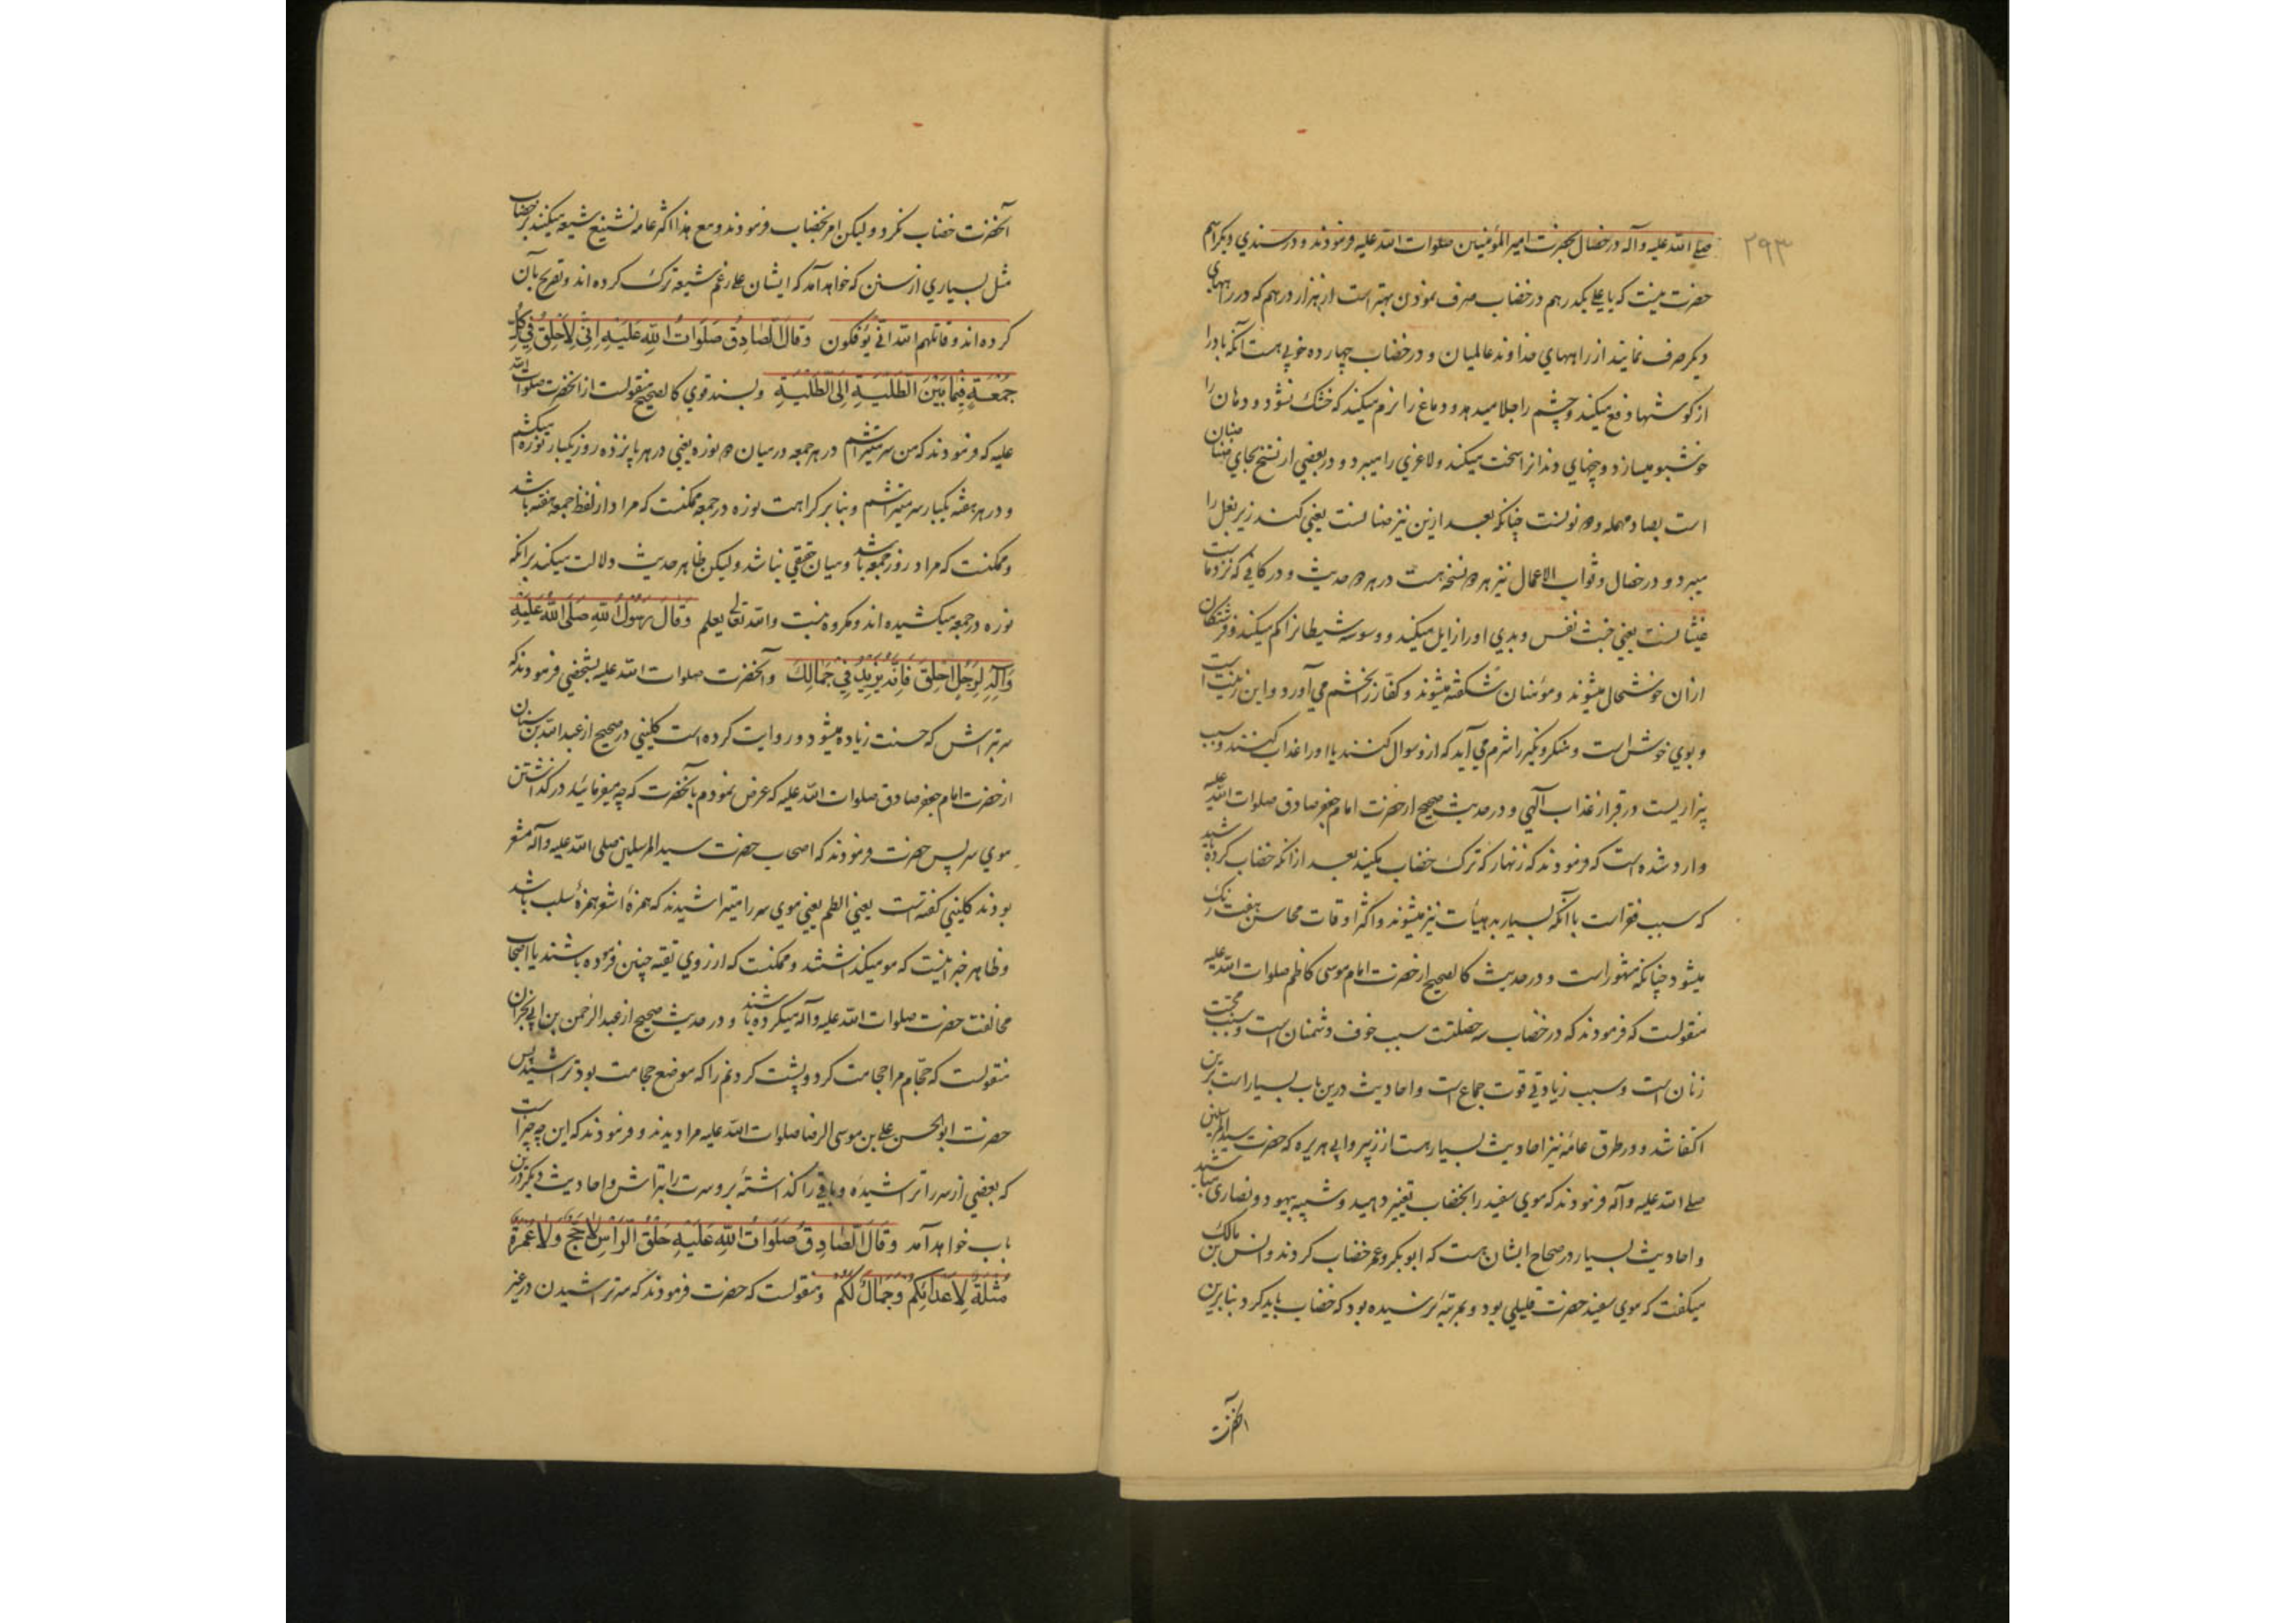 ۲۹۳
صلی الله علیه و آله در خصال بحضرت امیر المؤمنین صلوات الله علیه فرمودند و در سندي دیکر اسم
حضرت نیست که یا علی یکدرهم در خضاب صرف نمودن بهتر است از هزار درهم که در راههای
دیکر صرف نمایند از راههاي خداوند عالمیان و در خضاب چهارده خوبی هست آنکه باد را
از کوشها دفع میکند و چشم را جلا میدهد و دماغ را نرم میکند که خشک نشود و دهان را
خوشبو میسازد و بیخهاي دندانرا سخت میکند و لاغري را میبرد و در بعضي از نسخ بجاي ضنان
است بصاد مهمله و دو نونست چنانکه بعد ازین نیز صنانست یعني کند زیر بغل را
میبرد و در خصال و ثواب الاعمال نیز هر دو نسخه هست در هر دو حدیث و در کافی که نزد ماست
غثیانست یعني خبث نفس و بدي او را زایل میکند و وسوسه شیطانرا کم میکند و فرشتکان
از آن خوشحال میشوند و مؤمنان شکفته میشوند و کفار را بخشم مي آورد و این زینت است
و بوي خوش است و منکر و نکیر را شرم مي آید که ازو سوال کنند یا او را عذاب کنند و سبب
بیزاریست در قبر از عذاب آلهي و در حدیث صحیح از حضرت امام جعفر صادق صلوات الله علیه
وارد شده است که فرمودند که زنهار که ترک خضاب مکنید بعد از انکه خضاب کرده باشید
که سبب فقر است با آنکه بسیار بد هیأت نیز میشوند و اکثر اوقات محاسن هفت رنک
میشود چنانکه مشهور است و در حدیث کالصحیح از حضرت امام موسی کاظم صلوات الله علیه
منقولست که فرمودند که در خضاب سه خصلتت سبب خوف دشمنان است و سبب محبت
زنان است و سبب زیادتی قوت جماع است و احادیث درین باب بسیار است برین
اکتفا شد و در طرق عامه نیز احادیث بسیار هست از زبیر و ابی هریره که حضرت سید المرسلین
صلی الله علیه و آله فرمودند که موي سفید را بخضاب تغییر دهید و شبیه بیهود و نصاری مباشید
و احادیث بسیار در صحاح ایشان هست که ابو بکر و عمر خضاب کردند و انس بن مالک
میکفت که موي سفید حضرت قلیلی بود و بمرتبهٔ نرسیده بود که خضاب باید کرد بنابرین
آنحضرت
آنحضرت خضاب نکرد و لیکن امر بخضاب فرمودند و مع هذا اکثر عامه تشنیع شیعه میکنند بر خضاب
مثل بسیاري از سنن که خواهد آمد که ایشان علی رغم شیعه ترک کرده اند و تصریح بآن
کرده اند و قاتلهم الله انّی یؤفکون وَقالَ الصّادِقُ صَلَواتُ اللهِ عَلَیهِ اِنّی لَاَحلِقُ فی کُلِّ
جُمُعَةٍ فِیما بَیْنَ الطَّلْیَةِ اِلَی الطَّلْیَةِ و بسند قوي کالصحیح منقولست از آنحضرت صلوات الله
علیه که فرمودند که من سر میتراشم در هر جمعه در میان دو نوره یعني در هر پانزده روز یکبار نوره میکشم
و در هر هفته یکبار سر میتراشم و بنابر کراهت نوره در جمعه ممکنست که مراد از لفظ جمعه هفته باشد
و ممکنست که مراد روز جمعه باشد و میان حقیقی نباشد و لیکن ظاهر حدیث دلالت میکند بر انکه
نوره در جمعه میکشیده اند و مکروه نیست والله تعالی یعلم وَقالَ رَسُولُ اللهِ صَلَّی اللهُ عَلَیهِ
وَآلِهِ لِرَجُلٍ اِحْلِقْ فَاِنَّهُ یَزیدُ فی جَمالِکَ و آنحضرت صلوات الله علیه بشخصی فرمودند که
سر بتراش که حسنت زیاده میشود و روایت کرده است کلیني در صحیح از عبد الله بن سنان
از حضرت امام جعفر صادق صلوات الله علیه که عرض نمودم بآنحضرت که چه میفرمائید در کذاشتن
موي سر پس حضرت فرمودند که اصحاب حضرت سید المرسلین صلی الله علیه و آله مشعر
بودند کلیني کفته است یعني الطم یعني موي سر را میتراشیدند که همزهٔ اشعر همزهٔ سلب باشد
و ظاهر خبر اینست که مو میکذاشتند و ممکنست که از روي تقیه چنین فرموده باشند یا اصحاب
مخالفت حضرت صلوات الله علیه و آله میکرده باشند و در حدیث صحیح از عبد الرحمن بن ابی نجران
منقولست که حجّام مرا حجامت کرد و پشت کردنم را که موضع حجامت بود تراشید پس
حضرت ابو الحسن علی بن موسی الرضا صلوات الله علیه مرا دیدند و فرمودند که این چه چیز است
که بعضي از سر را تراشیدهٔ و باقي را کذاشتهٔ برو سرت را بتراش و احادیث دیکر درین
باب خواهد آمد وَقالَ الصّادِقُ صَلَواتُ اللهِ عَلَیهِ حَلْقُ الرَّأسِ لا حَجٍّ وَلا عُمْرَةٍ
مُثْلَةٌ لِاَعْدائِکُم وَجَمالٌ لَکُمْ و منقولست که حضرت فرمودند که سر تراشیدن در غیر